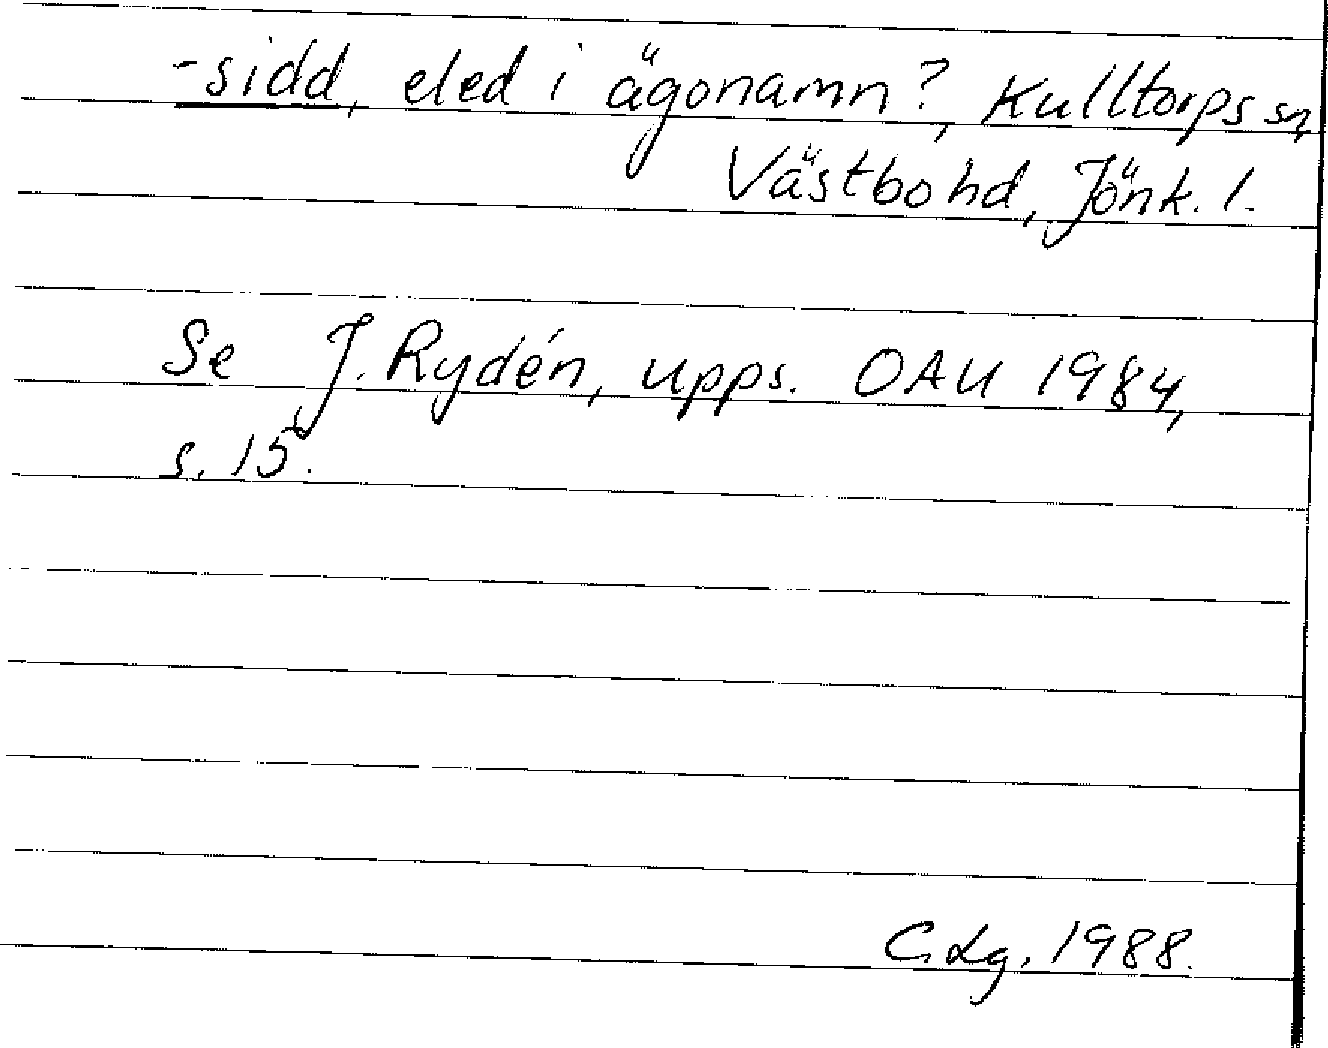 -sidd, eled i ägonamn?, Kulltorps sn,
Västbo hd, Jönk. l.
Se J. Rydén, upps. OAU 1984,
s. 15.
C. Lg. 1988.